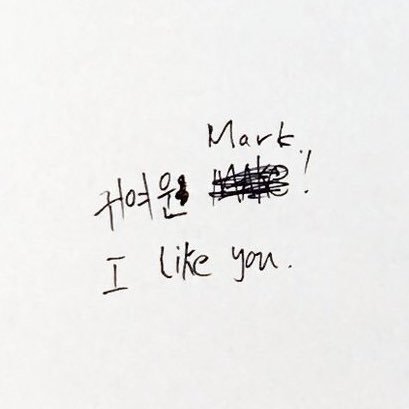 귀여운 Mark!
I like you.